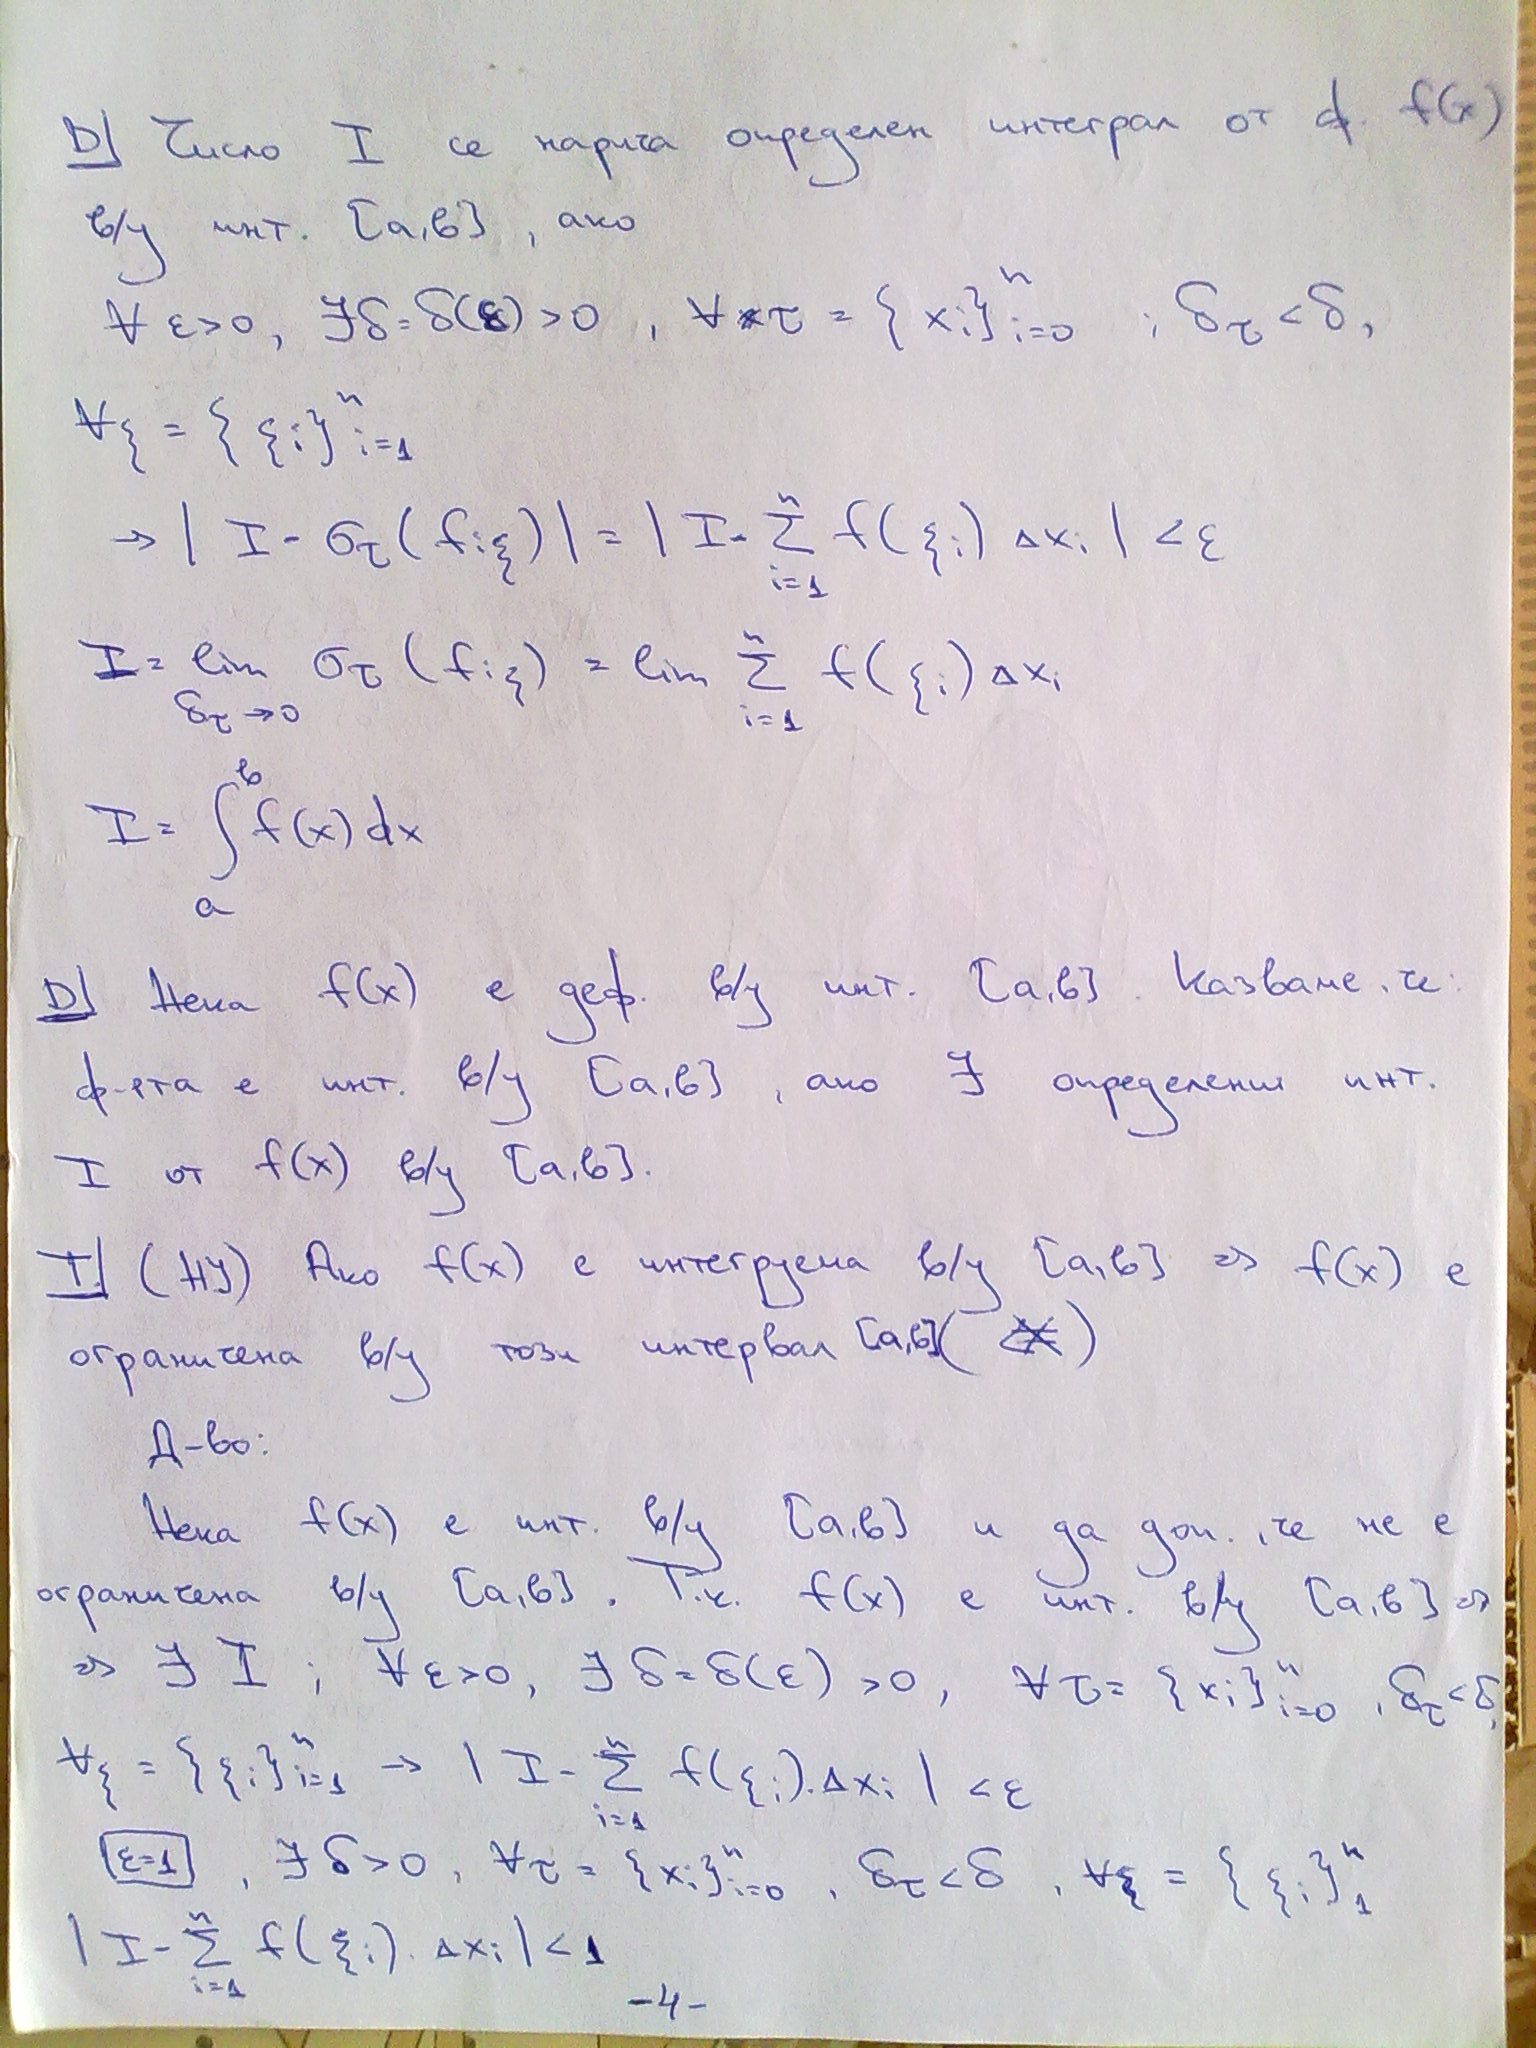 D| Число I се нарича определен интеграл от ф. f(x)
в/у инт. [a,b], ако
∀ε>0, ∃δ=δ(ε)>0, ∀τ = {xᵢ}ⁿᵢ₌₀ ; δ_τ<δ,
∀ξ = {ξᵢ}ⁿᵢ₌₁
→ | I - σ_τ(f;ξ)| = | I - ⁿΣᵢ₌₁ f(ξᵢ) Δxᵢ | <ε
I = lim_{δ_τ→0} σ_τ(f;ξ) = lim ⁿΣᵢ₌₁ f(ξᵢ) Δxᵢ
I = ∫ₐᵇ f(x) dx
D| Нека f(x) е деф. в/у инт. [a,b]. Казваме, че:
ф-ята е инт. в/у [a,b], ако ∃ определения инт.
I от f(x) в/у [a,b].
T| (НУ) Ако f(x) е интегруема в/у [a,b] => f(x) е
ограничена в/у този интервал [a,b] ( )
Д-во:
Нека f(x) е инт. в/у [a,b] и да доп., че не е
ограничена в/у [a,b]. Т.к. f(x) е инт. в/у [a,b] =>
=> ∃ I ; ∀ε>0, ∃δ=δ(ε)>0, ∀τ= {xᵢ}ⁿᵢ₌₀, δ_τ<δ,
∀ξ = {ξᵢ}ⁿᵢ₌₁ → | I - ⁿΣᵢ₌₁ f(ξᵢ).Δxᵢ | <ε
ε=1, ∃δ>0, ∀τ = {xᵢ}ⁿᵢ₌₀, δ_τ<δ, ∀ξ = {ξᵢ}ⁿ₁
| I - ⁿΣᵢ₌₁ f(ξᵢ). Δxᵢ | < 1
-4-